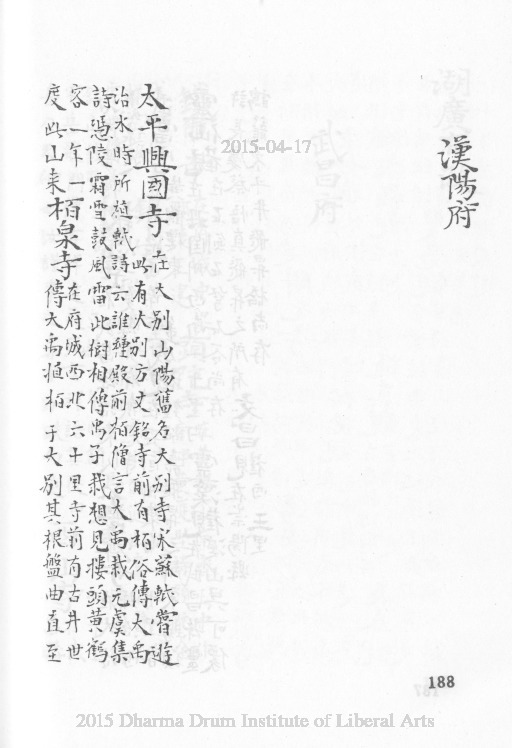 漢陽府
太平興國寺
在大別山陽舊名大別寺宋蘇軾嘗遊
此有大別方丈銘寺前有栢俗傳大禹
治水時所植軾詩云誰種殿前栢僧言大禹栽元虞集
詩憑陵霜雪鼓風雷此樹相傳禹子栽想見樓頭黃鶴
客一年一
度此山来
栢泉寺
在府城西北六十里寺前有古井世
傳大禹植栢于大別其根盤曲直至
2015-04-17
188
2015 Dharma Drum Institute of Liberal Arts